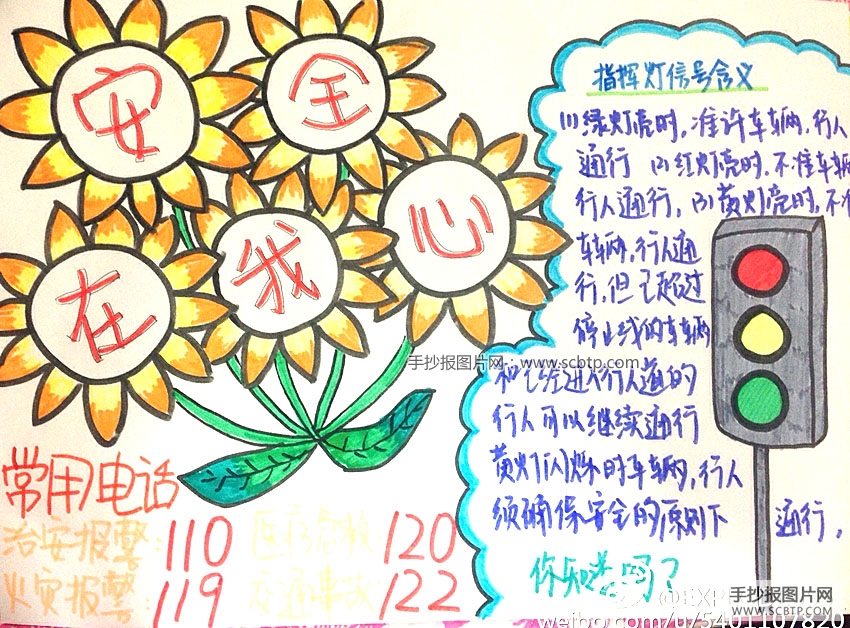 安 全
在 我 心
常用电话
治安报警:110 医疗急救 120
火灾报警:119 交通事故 122
指挥灯信号含义
(1)绿灯亮时,准许车辆,行人
通行 (2)红灯亮时,不准车辆
行人通行,(3)黄灯亮时,不准
车辆,行人通
行,但已超过
停止线的车辆
和已经进入人行道的
行人可以继续通行
黄灯闪烁时车辆,行人
须确保安全的原则下 通行,
你知道吗?
手抄报图片网:www.scbtp.com
手抄报图片网
WWW.SCBTP.COM
weibo.com/u/5401107820